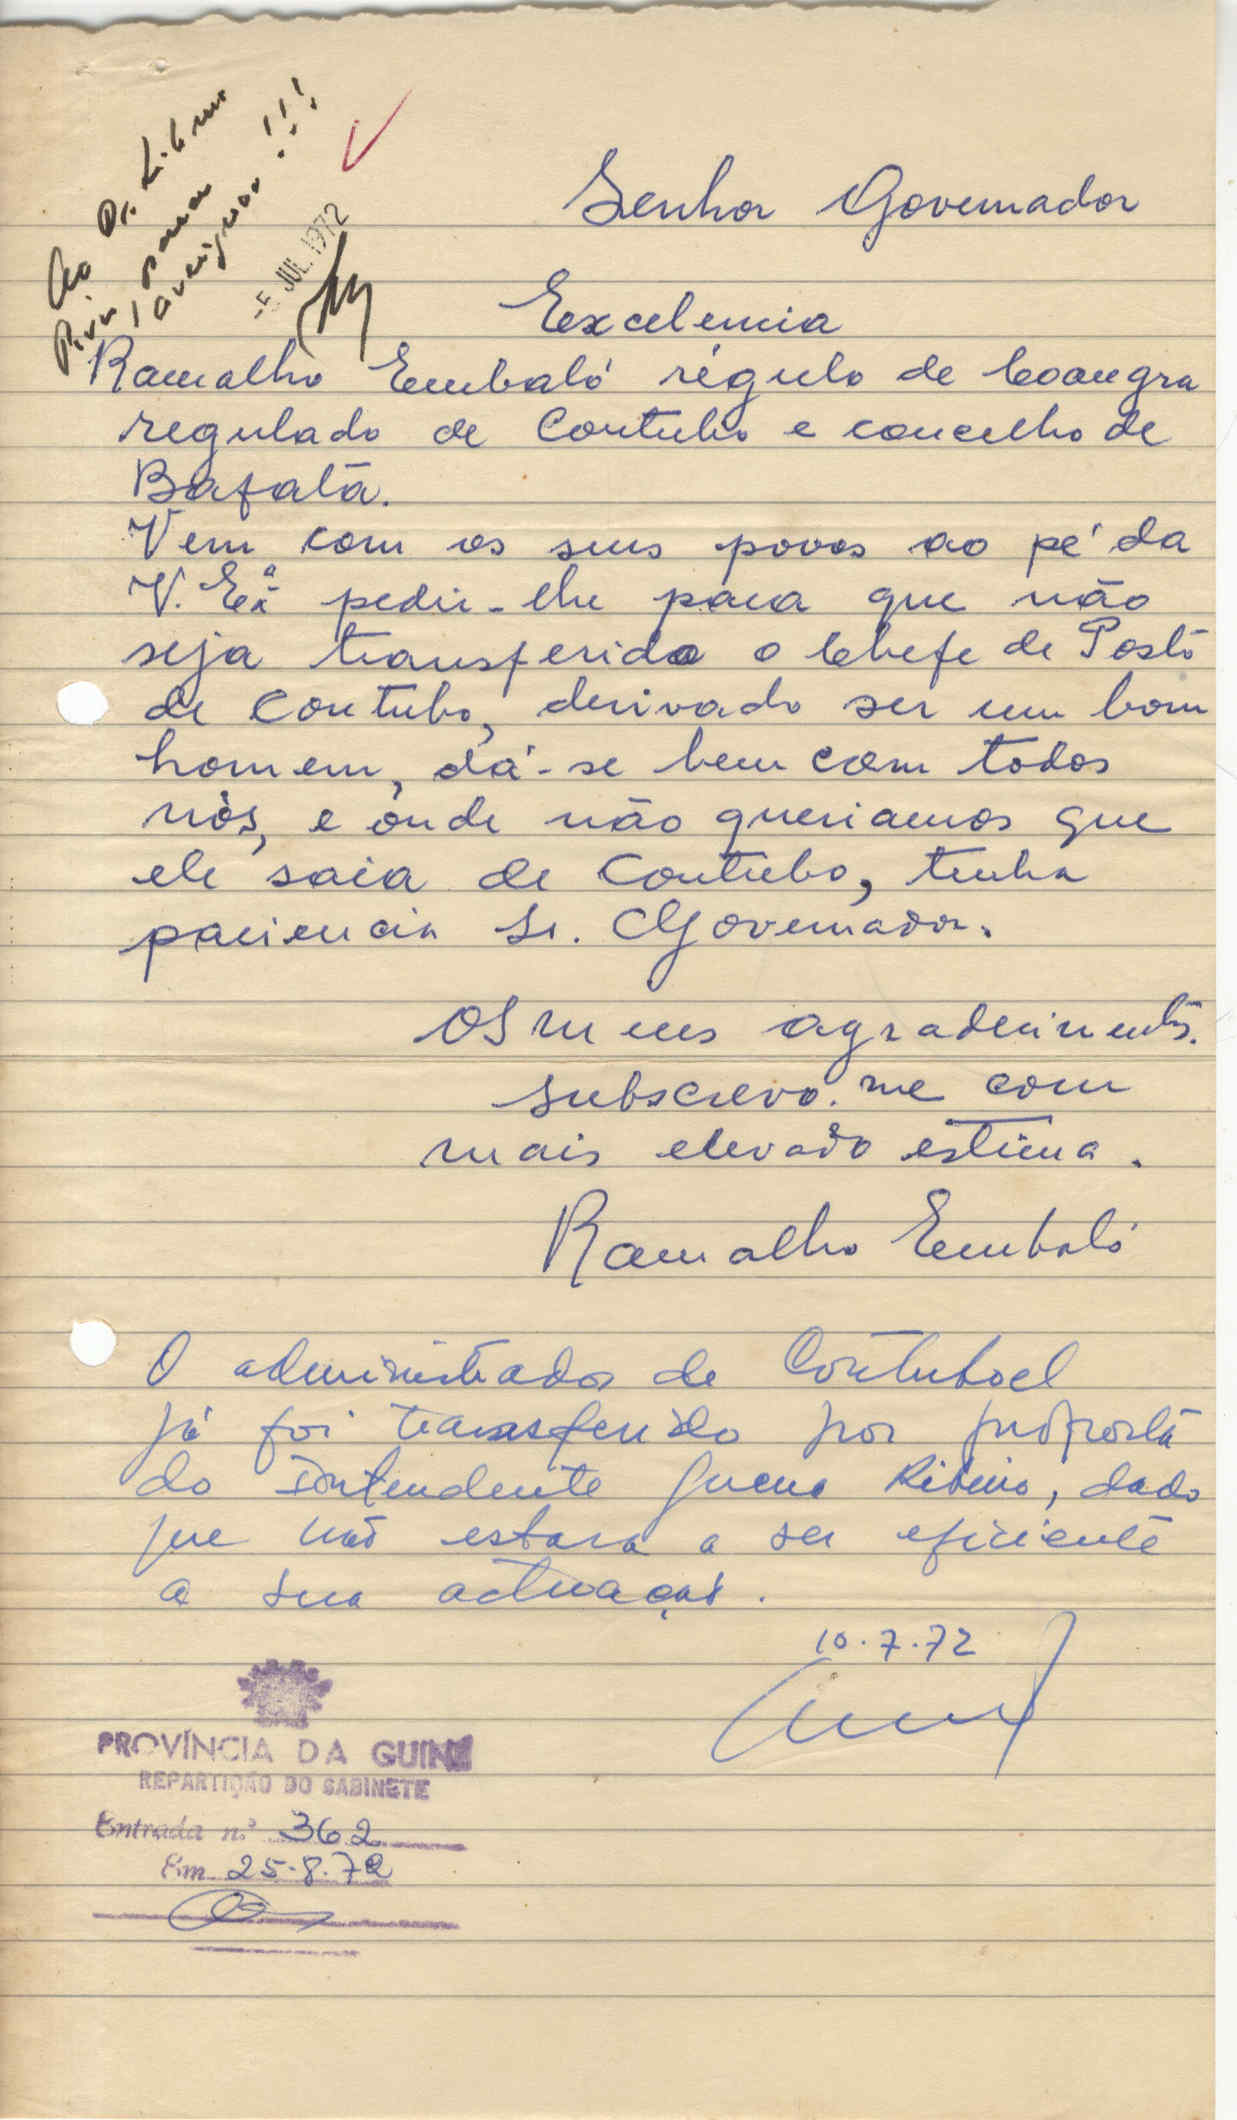 Ao Dr. Libano
Pires, para
averiguar!!!
-5 JUL. 1972
Senhor Governador
Excelencia
Ramalho Embaló régulo de Coangra
regulado de Contubo e concelho de
Bafatá.
Vem com os seus povos ao pé da
V. Exª pedir-lhe para que não
seja transferido o Chefe de Posto
de Contubo, derivado ser um bom
homem, dá-se bem com todos
nós, e onde não queriamos que
ele saia de Contubo, tenha
paciencia Sr. Governador.
Os meus agradecimentos.
Subscrevo-me com
mais elevado estima.
Ramalho Embaló
O administrador de Contuboel
já foi transferido por proposta
do Intendente Guerra Ribeiro, dado
que não estava a ser eficiente
a sua actuação.
10.7.72
PROVÍNCIA DA GUINÉ
REPARTIÇÃO DO GABINETE
Entrada n.º 362
Em 25.8.72